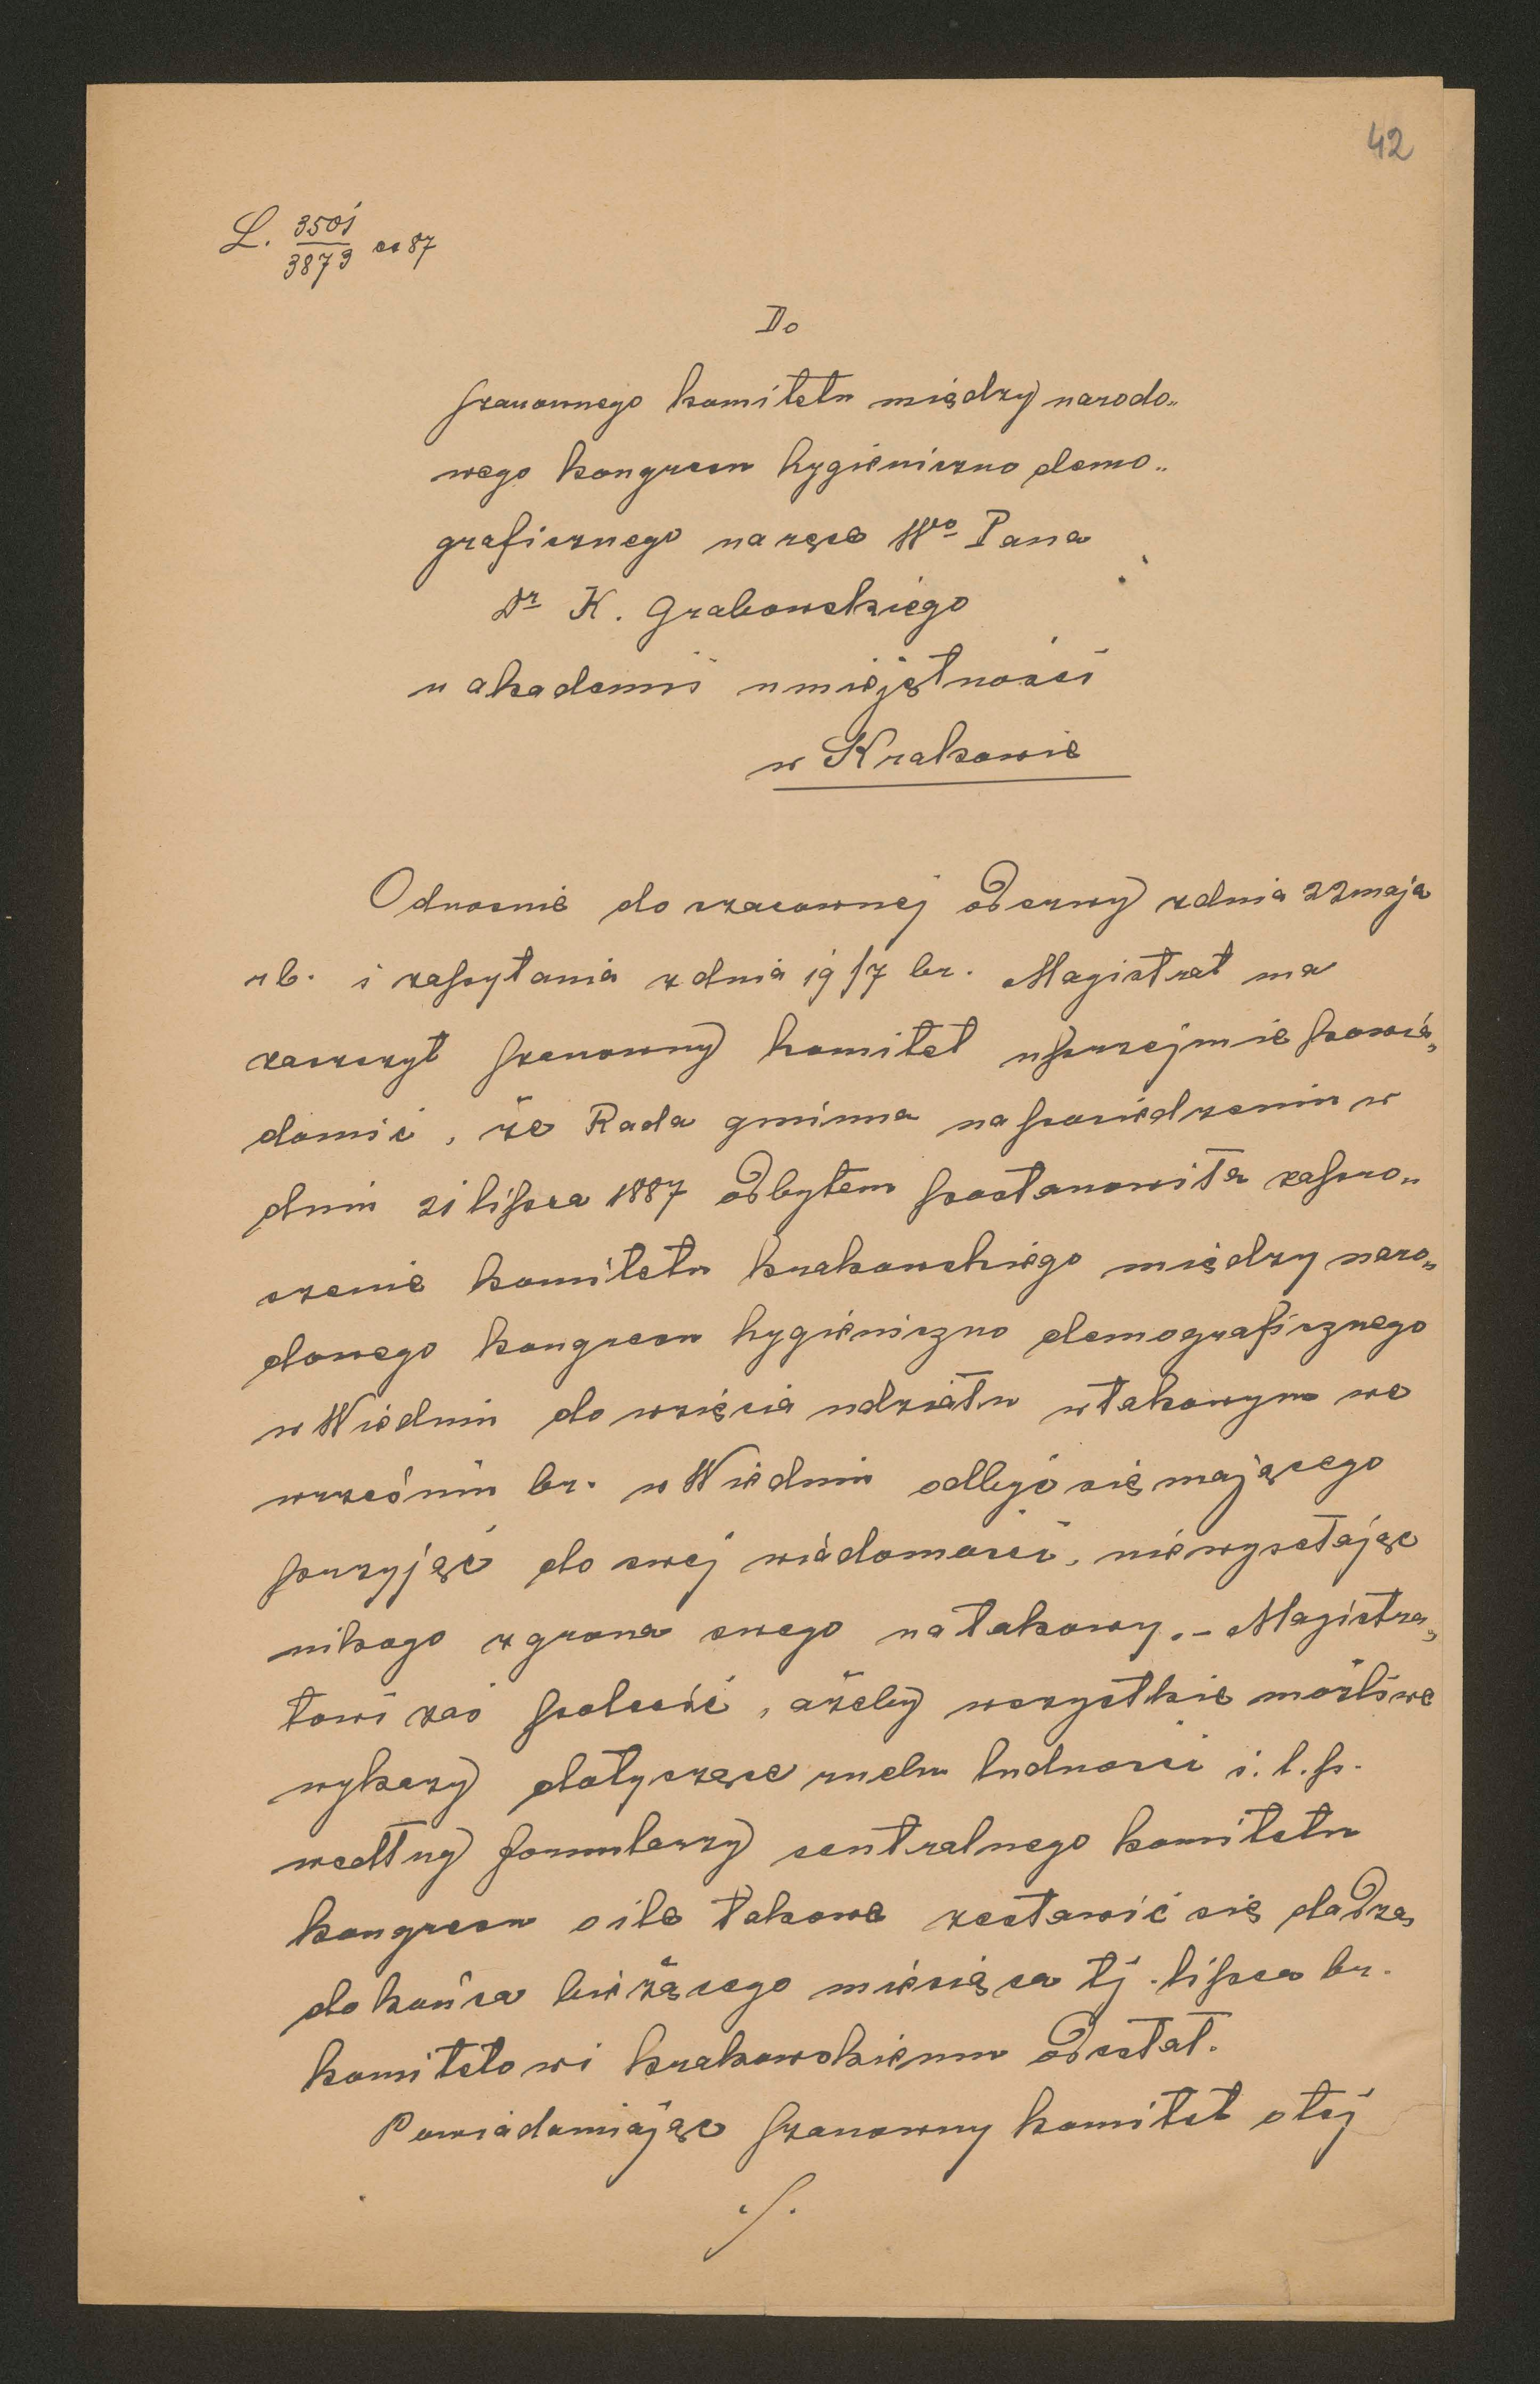 42
L. 3501
3873 ex 87
Do
szanownego komitetu między narodo„
wego kongresu hygieniczno demo„
graficznego na ręce Wo Pana
Dr K. Grabowskiego
w akademii umiejętności
w Krakowie
Odnośnie do szacownej odezwy z dnia 22 maja
rb. i zapytania z dnia 19/7 br. Magistrat ma
zaszczyt szanowny komitet uprzejmie powia„
domić, że Rada gminna na posiedzeniu w
dniu 21 lipca 1887 odbytem postanowiła zapro„
szenie komitetu krakowskiego między naro„
dowego kongresu hygieniczno demograficznego
w Wiedniu do wzięcia udziału w takowym we
wrześniu br. w Wiedniu odbyć się mającego
przyjąć do swej wiadomości, nie wysełając
nikogo z grona swego na takowy. – Magistra„
towi zaś polecić, ażeby wszystkie możliwe
wykazy dotyczące ruchu ludności i. t. p.
według formularzy centralnego komitetu
kongresu o ile takowe zestawić się dadzą
do końca bieżącego miesiąca tj. lipca br.
komitetowi krakowskiemu odesłał.
Powiadamiając szanowny komitet o tej
./.